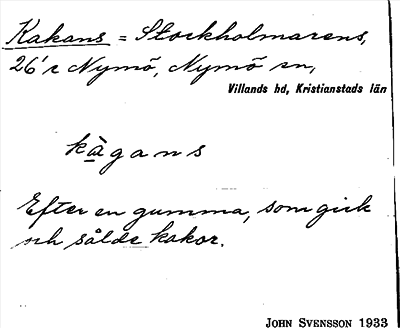 Kakans = Stockholmarens,
26'r Nymö, Nymö sn,
Villands hd, Kristianstads län
kàgans
Efter en gumma, som gick
och sålde kakor.
JOHN SVENSSON 1933